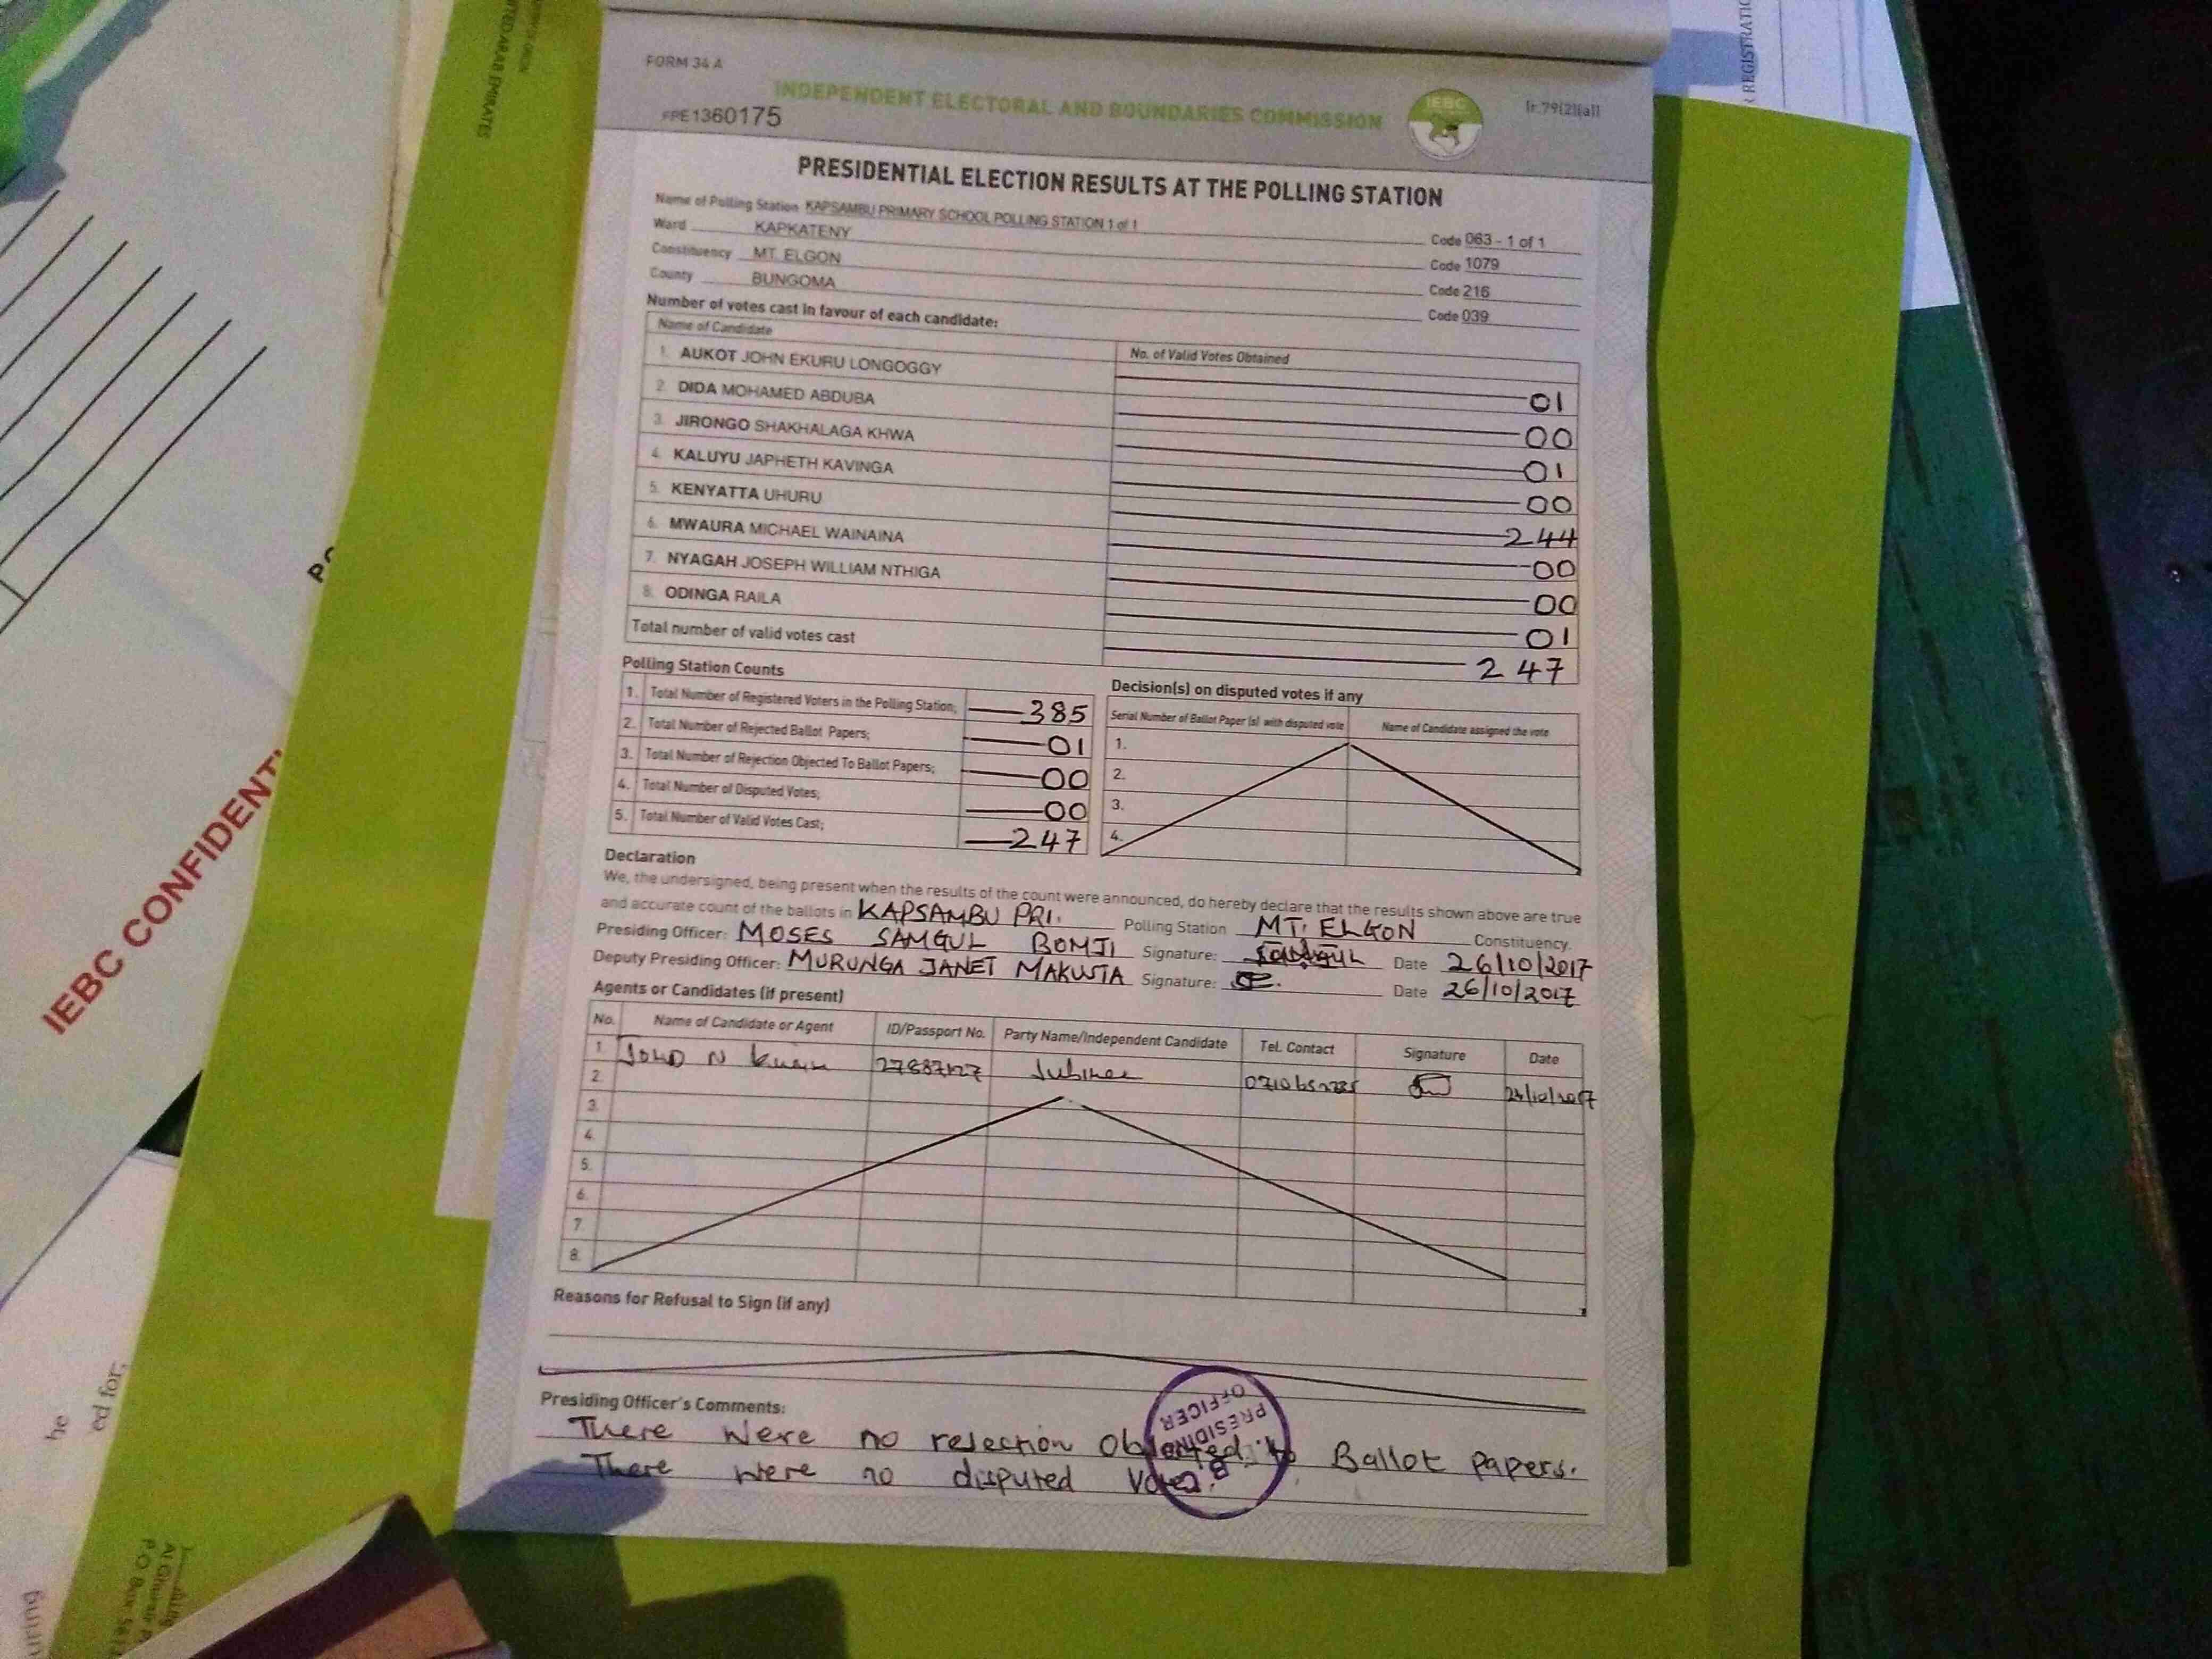 FORM 34 A
INDEPENDENT ELECTORAL AND BOUNDARIES COMMISSION
IEBC
[r.79(2)(a)]
FPE1360175
PRESIDENTIAL ELECTION RESULTS AT THE POLLING STATION
Name of Polling Station KAPSAMBU PRIMARY SCHOOL POLLING STATION 1 of 1 Code 063 - 1 of 1
Ward KAPKATENY Code 1079
Constituency MT. ELGON Code 216
County BUNGOMA Code 039
Number of votes cast in favour of each candidate:
Name of Candidate No. of Valid Votes Obtained
1. AUKOT JOHN EKURU LONGOGGY 01
2. DIDA MOHAMED ABDUBA 00
3. JIRONGO SHAKHALAGA KHWA 01
4. KALUYU JAPHETH KAVINGA 00
5. KENYATTA UHURU 244
6. MWAURA MICHAEL WAINAINA 00
7. NYAGAH JOSEPH WILLIAM NTHIGA 00
8. ODINGA RAILA 01
Total number of valid votes cast 247
Polling Station Counts
1. Total Number of Registered Voters in the Polling Station; 385
2. Total Number of Rejected Ballot Papers; 01
3. Total Number of Rejection Objected To Ballot Papers; 00
4. Total Number of Disputed Votes; 00
5. Total Number of Valid Votes Cast; 247
Decision(s) on disputed votes if any
Serial Number of Ballot Paper (s) with disputed vote Name of Candidate assigned the vote
1.
2.
3.
4.
Declaration
We, the undersigned, being present when the results of the count were announced, do hereby declare that the results shown above are true
and accurate count of the ballots in KAPSAMBU PRI. Polling Station MT. ELGON Constituency.
Presiding Officer: MOSES SAMGUL BOMJI Signature: Date 26/10/2017
Deputy Presiding Officer: MURUNGA JANET MAKUSTA Signature: Date 26/10/2017
Agents or Candidates (if present)
No. Name of Candidate or Agent ID/Passport No. Party Name/Independent Candidate Tel. Contact Signature Date
1. N Jubilee
2.
3.
4.
5.
6.
7.
8.
Reasons for Refusal to Sign (if any)
Presiding Officer's Comments:
There were no rejection Objected to Ballot papers.
There were no disputed Votes.
PRESIDING
OFFICER
IEBC CONFIDENTI
R REGISTRATIO
ITED ARAB EMIRATES
he
ed for;
P.O Box